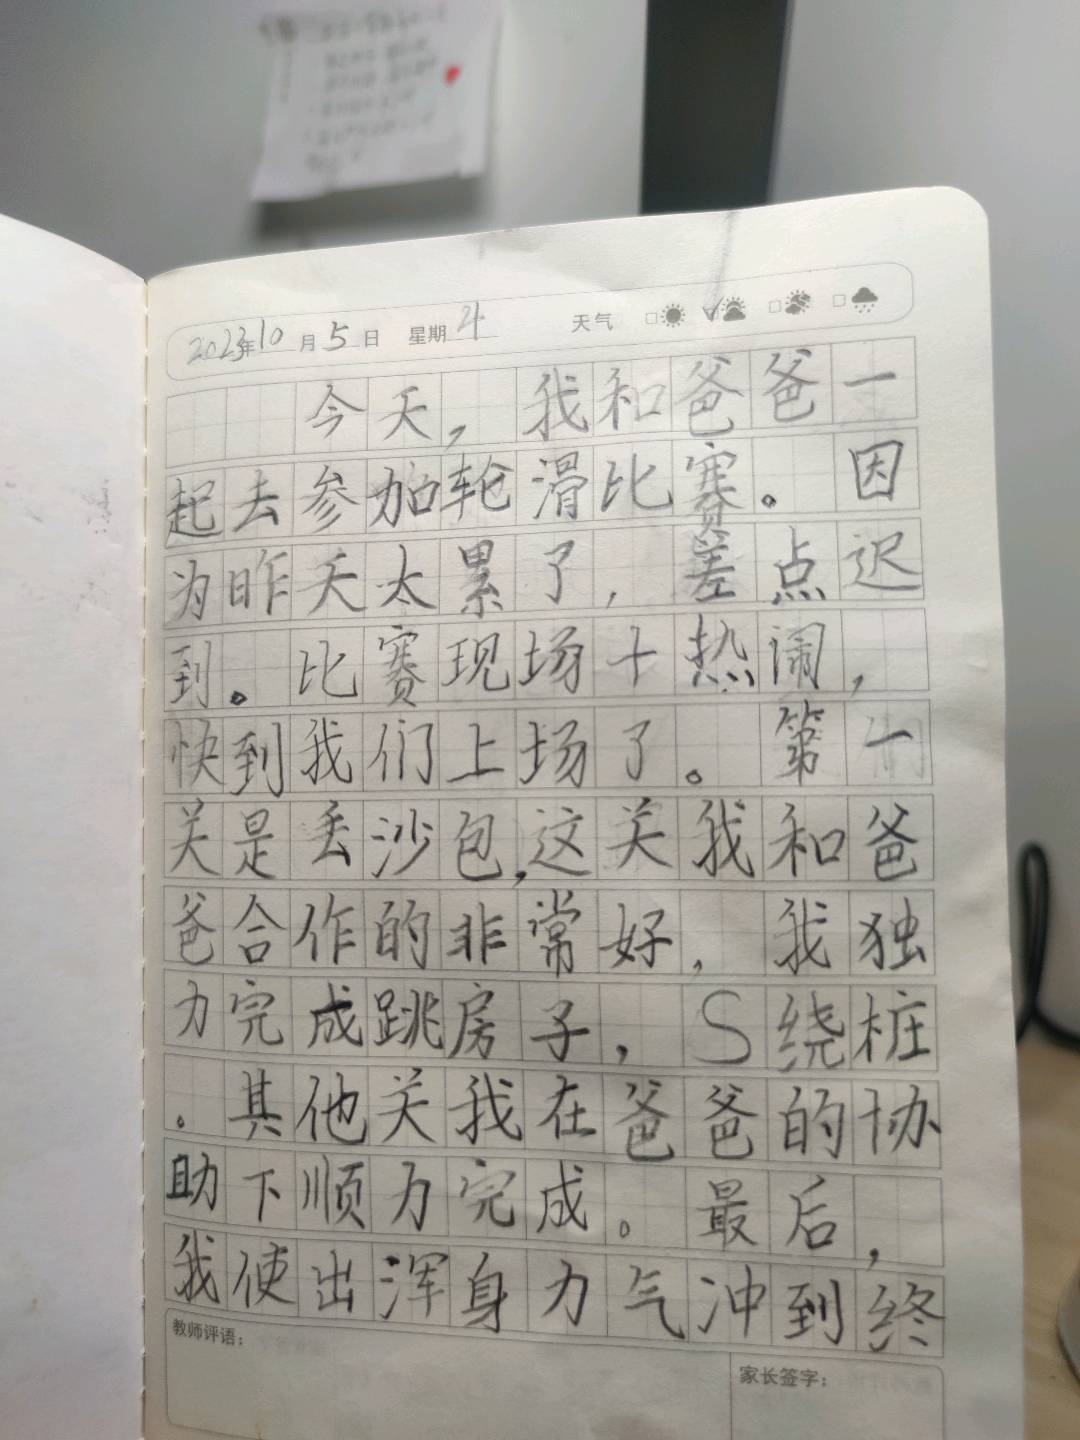 2023年10月5日 星期4 天气
今天，我和爸爸一
起去参加轮滑比赛。因
为昨天太累了，差点迟
到。比赛现场十热闹，
快到我们上场了。第一
关是丢沙包，这关我和爸
爸合作的非常好，我独
力完成跳房子，S绕桩
。其他关我在爸爸的协
助下顺力完成。最后，
我使出浑身力气冲到终
教师评语：
家长签字：